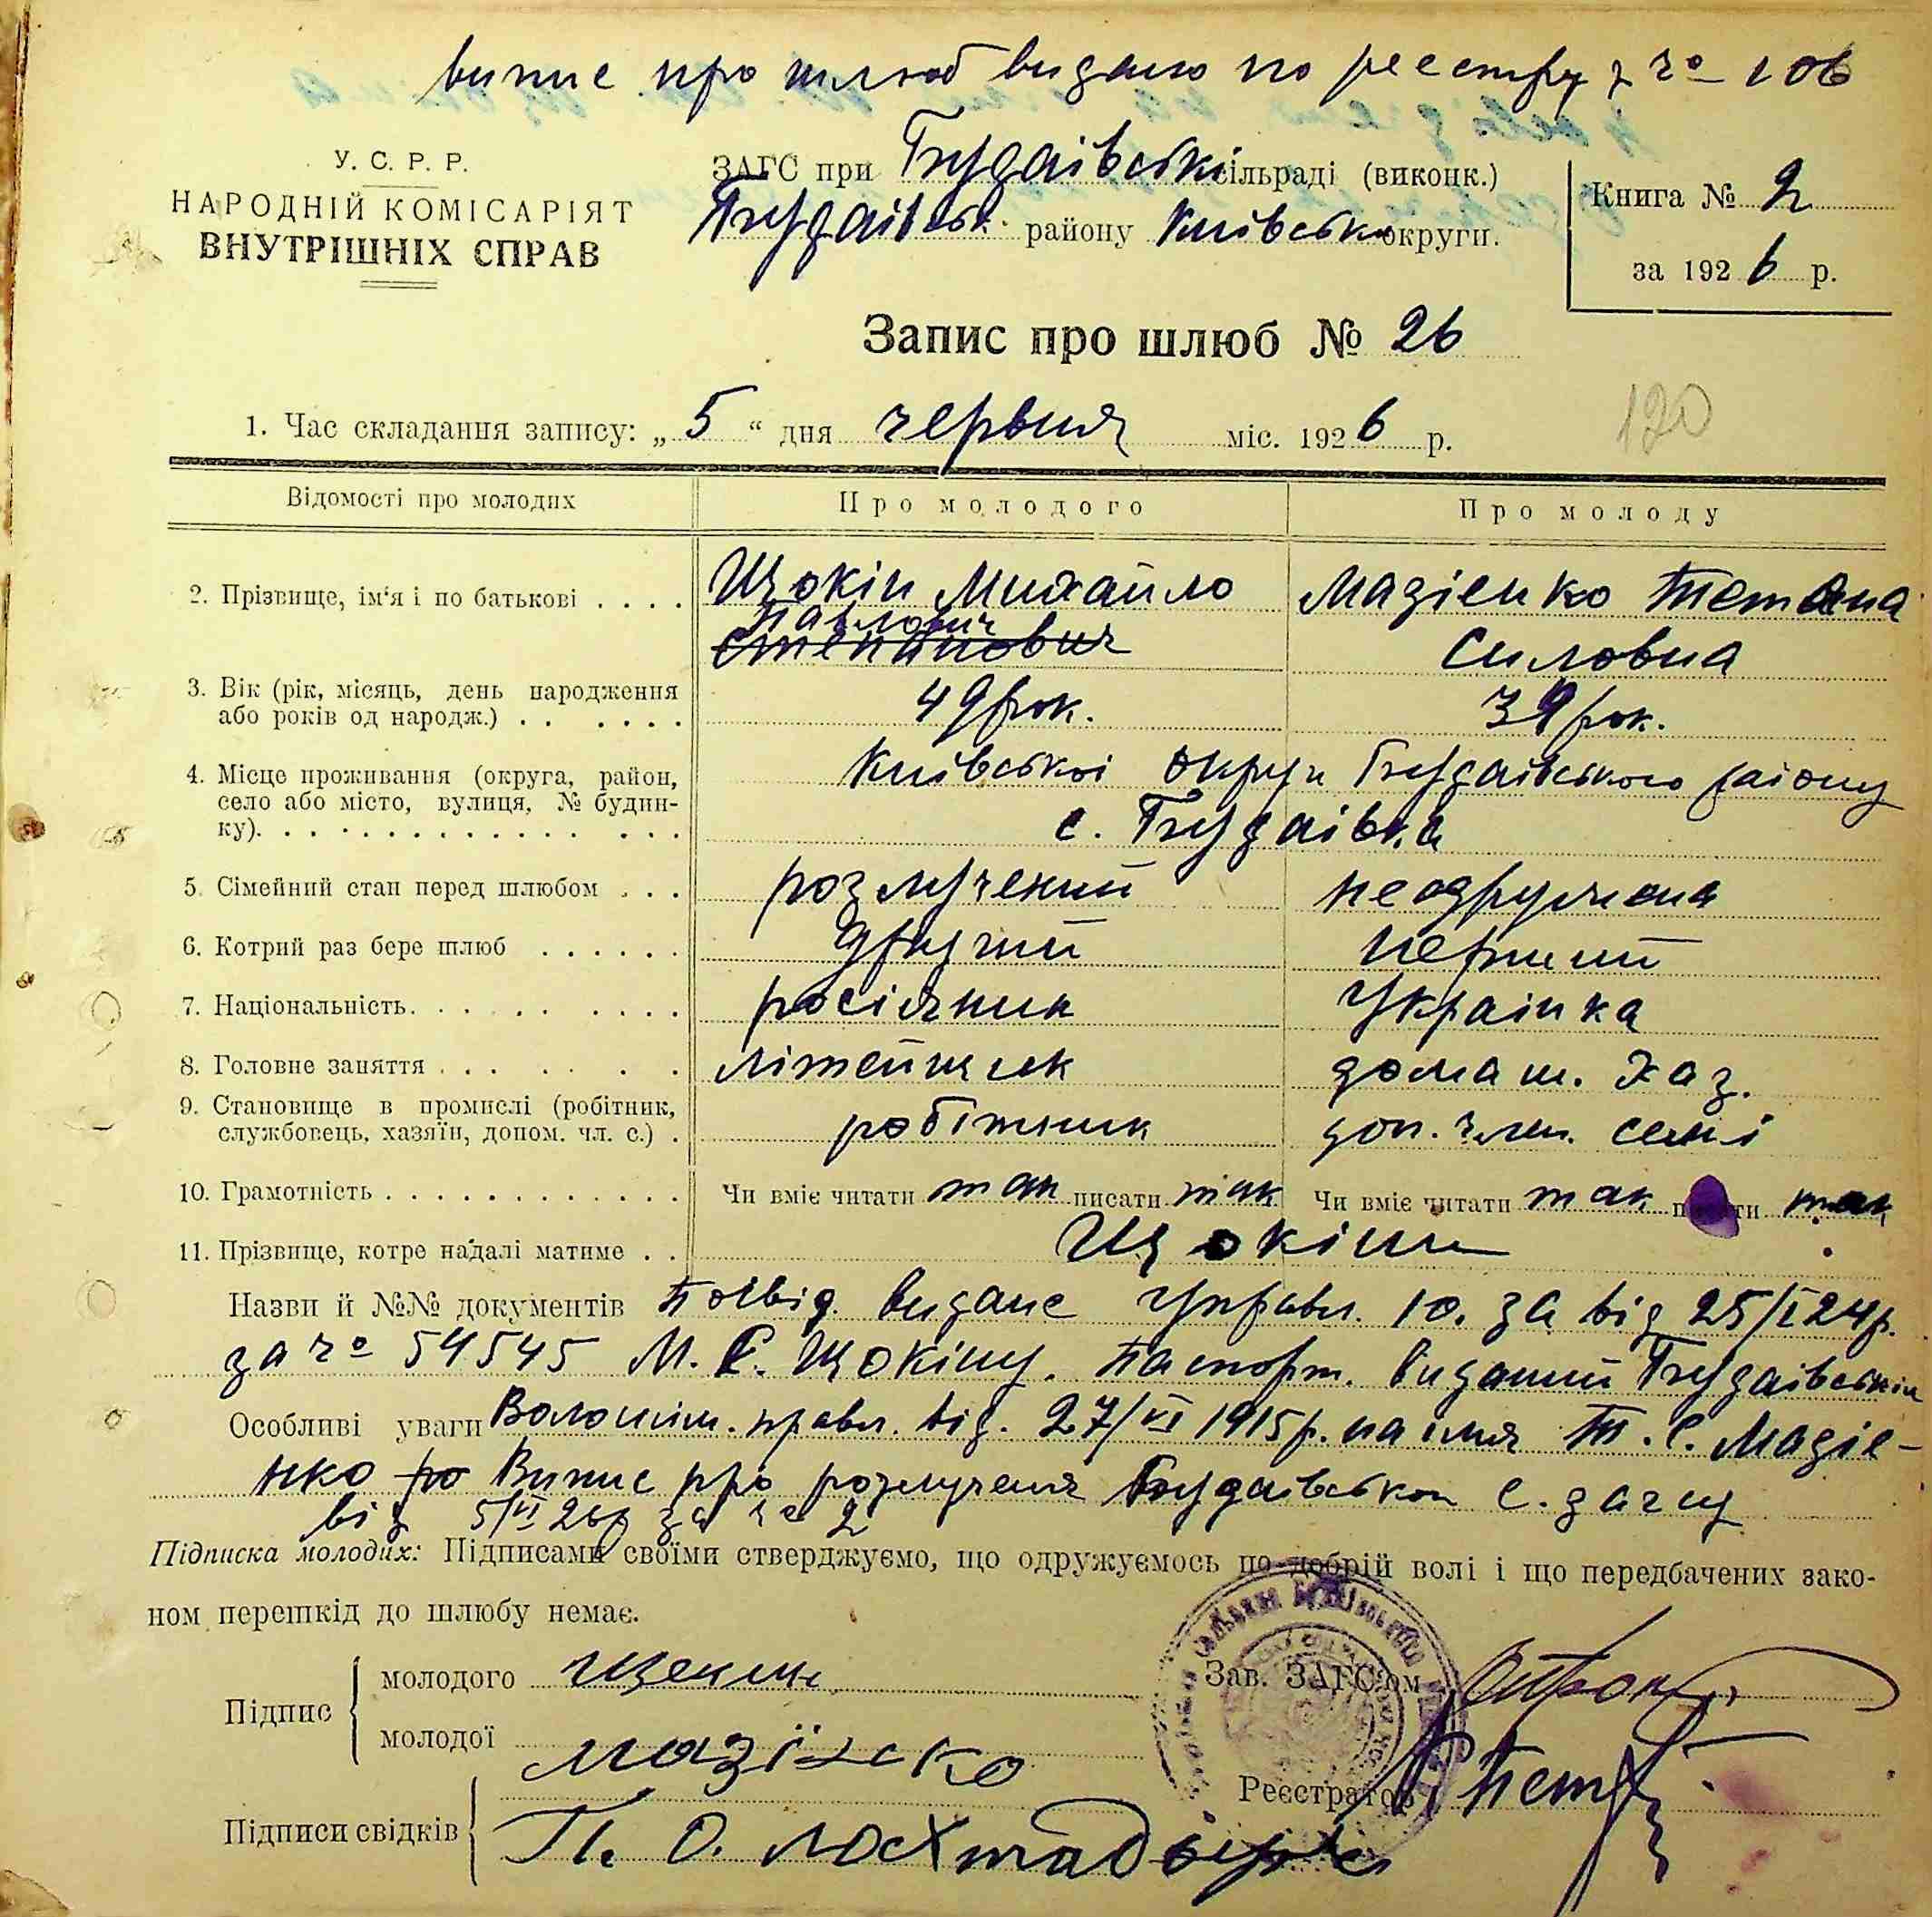 випис про шлюб видано по реестру за ч° 106
У. С. Р. Р.
НАРОДНІЙ КОМІСАРІЯТ
ВНУТРІШНІХ СПРАВ
ЗАГС при Будаівські сільраді (виконк.)
Будаівськ. району Киівськ округи.
Книга № 2
за 1926 р.
Запис про шлюб № 26
120
1. Час складання запису: „ 5 “ дня червня міс. 1926 р.
Відомості про молодих
Про молодого
Про молоду
2. Прізвище, ім‘я і по батькові . . . .
Щокін Михайло
Павлович
Степанович
Мазіенко Тетяна
Силовна
3. Вік (рік, місяць, день народження
або років од народж.) . . . . . .
49 рок.
39 рок.
4. Місце проживання (округа, район,
село або місто, вулиця, № будин-
ку). . . . . . . . . . . . . . . .
Киівськоі округи Будаівського району
с. Будаівка
5. Сімейний стан перед шлюбом . . .
розлучений
неодружена
6. Котрий раз бере шлюб . . . . . .
другий
перший
7. Національність. . . . . . . . . .
росіянин
Украінка
8. Головне заняття . . . . . . .
літейщик
домаш. хаз.
9. Становище в промислі (робітник,
службовець, хазяїн, допом. чл. с.) .
робітник
доп. член. семі
10. Грамотність . . . . . . . . . . . . .
Чи вміє читати так писати так
Чи вміє читати так писати так
11. Прізвище, котре надалі матиме . .
Щокіни
Назви й №№ документів Посвід. видане управл. Ю. За від 25/I 24р.
за ч° 54545 М. С. Щокіну. Паспорт. виданий Будаівським
Особливі уваги Волосним. правл. від. 27/VI 1915р. на імя Т. С. Мазіе-
нко ро Випис про розлученя Будаівськом с. загсу
від 5/VI 26р за ч° 2
Підписка молодих: Підписами своїми стверджуємо, що одружуємось по-добрій волі і що передбачених зако-
ном перешкід до шлюбу немає.
Підпис
молодого Щекин
молодої Мазіеко
Зав. ЗАГС‘ом
Реєстратор
Підписи свідків